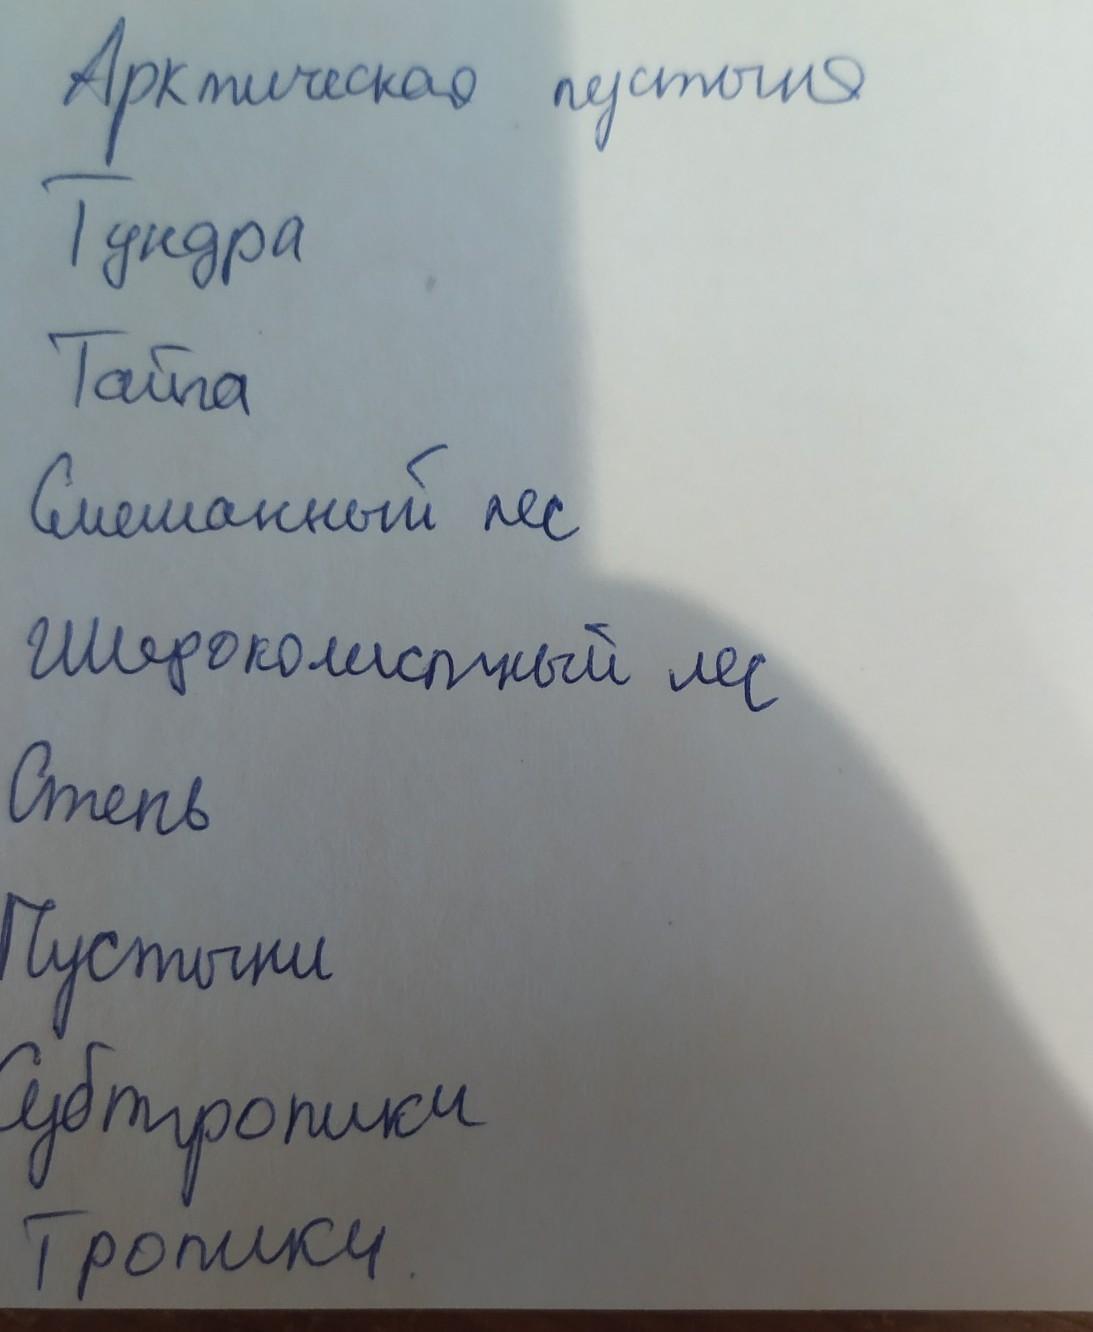 Арктическая пустыня
Тундра
Тайга
Смешанный лес
Широколистный лес
Степь
Пустыни
Субтропики
Тропики.